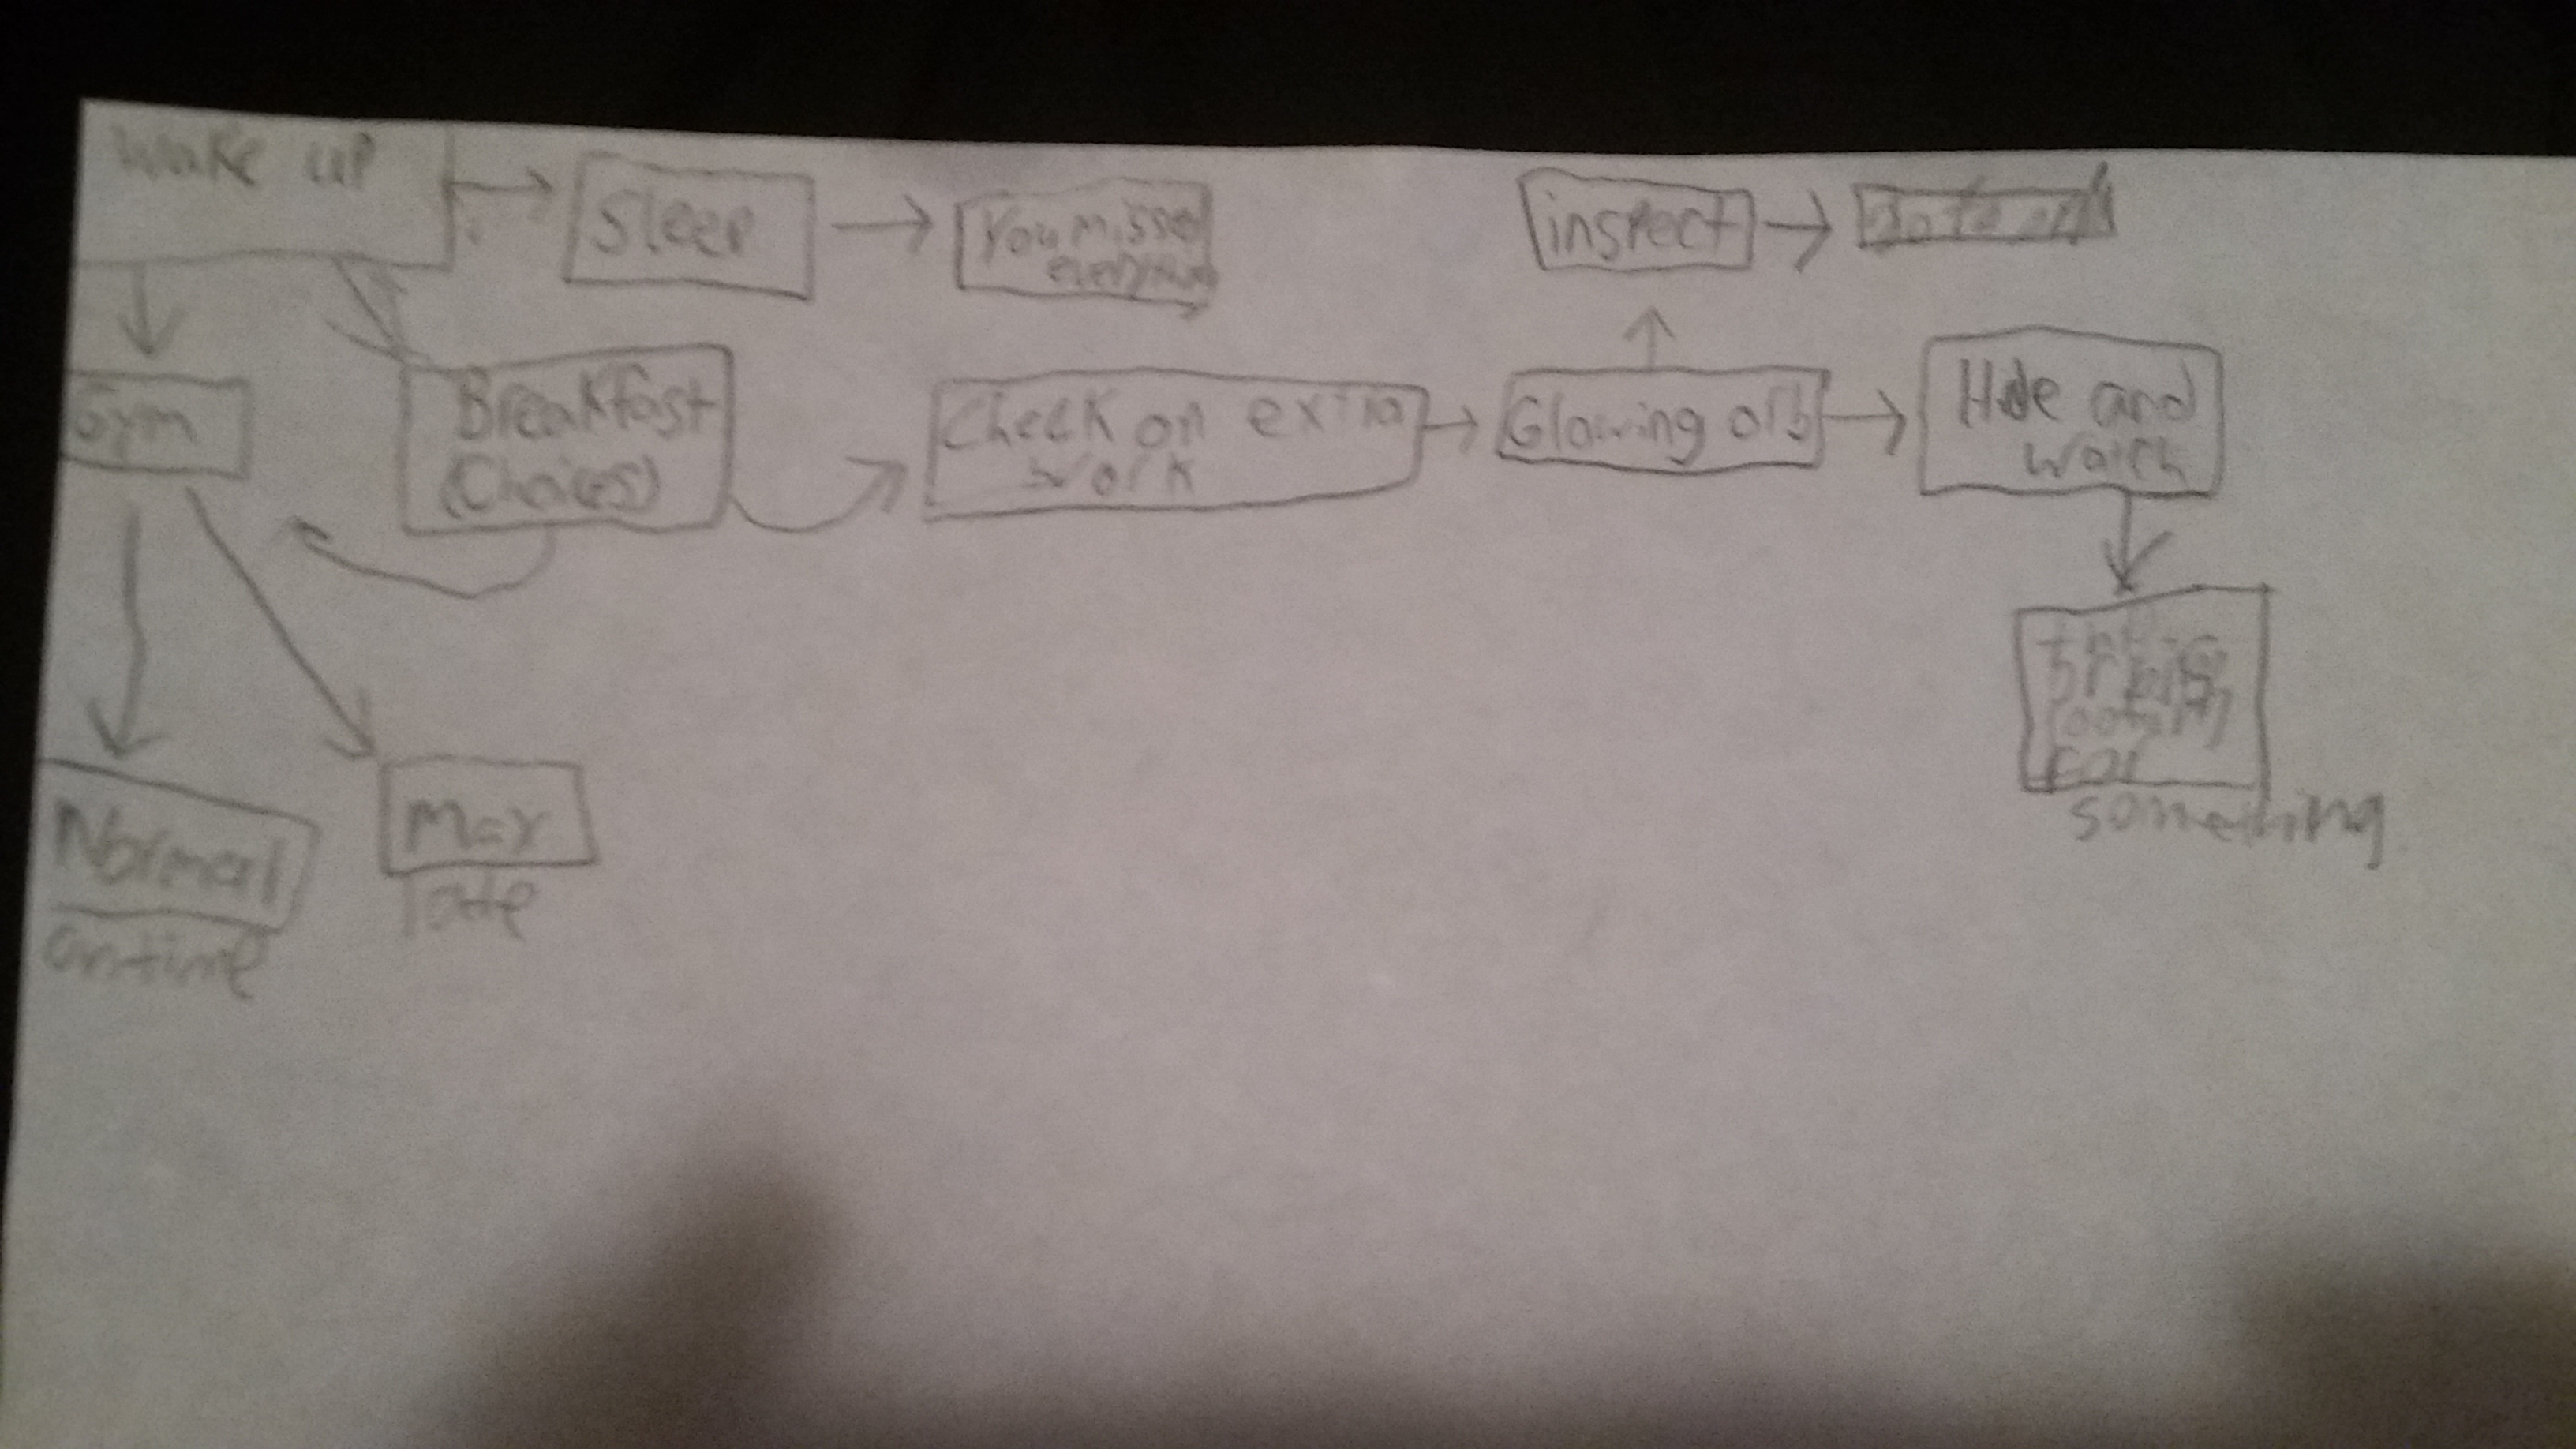 Wake up
Sleep
You missed
everything
inspect
Gym
Breakfast
(Choices)
Check on extra
work
Glowing orb
Hide and
watch
looking
for
something
Normal
ontime
Max
late